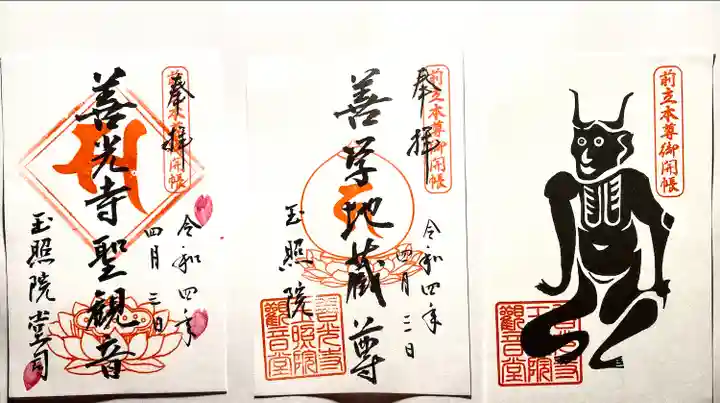 奉拝
前立本尊御開帳
善光寺聖観音
令和四年
四月三日
玉照院堂司
奉拝
前立本尊御開帳
善学地蔵尊
令和四年
四月三日
玉照院
善光寺
玉照院
觀音堂
前立本尊御開帳
善光寺
玉照院
觀音堂